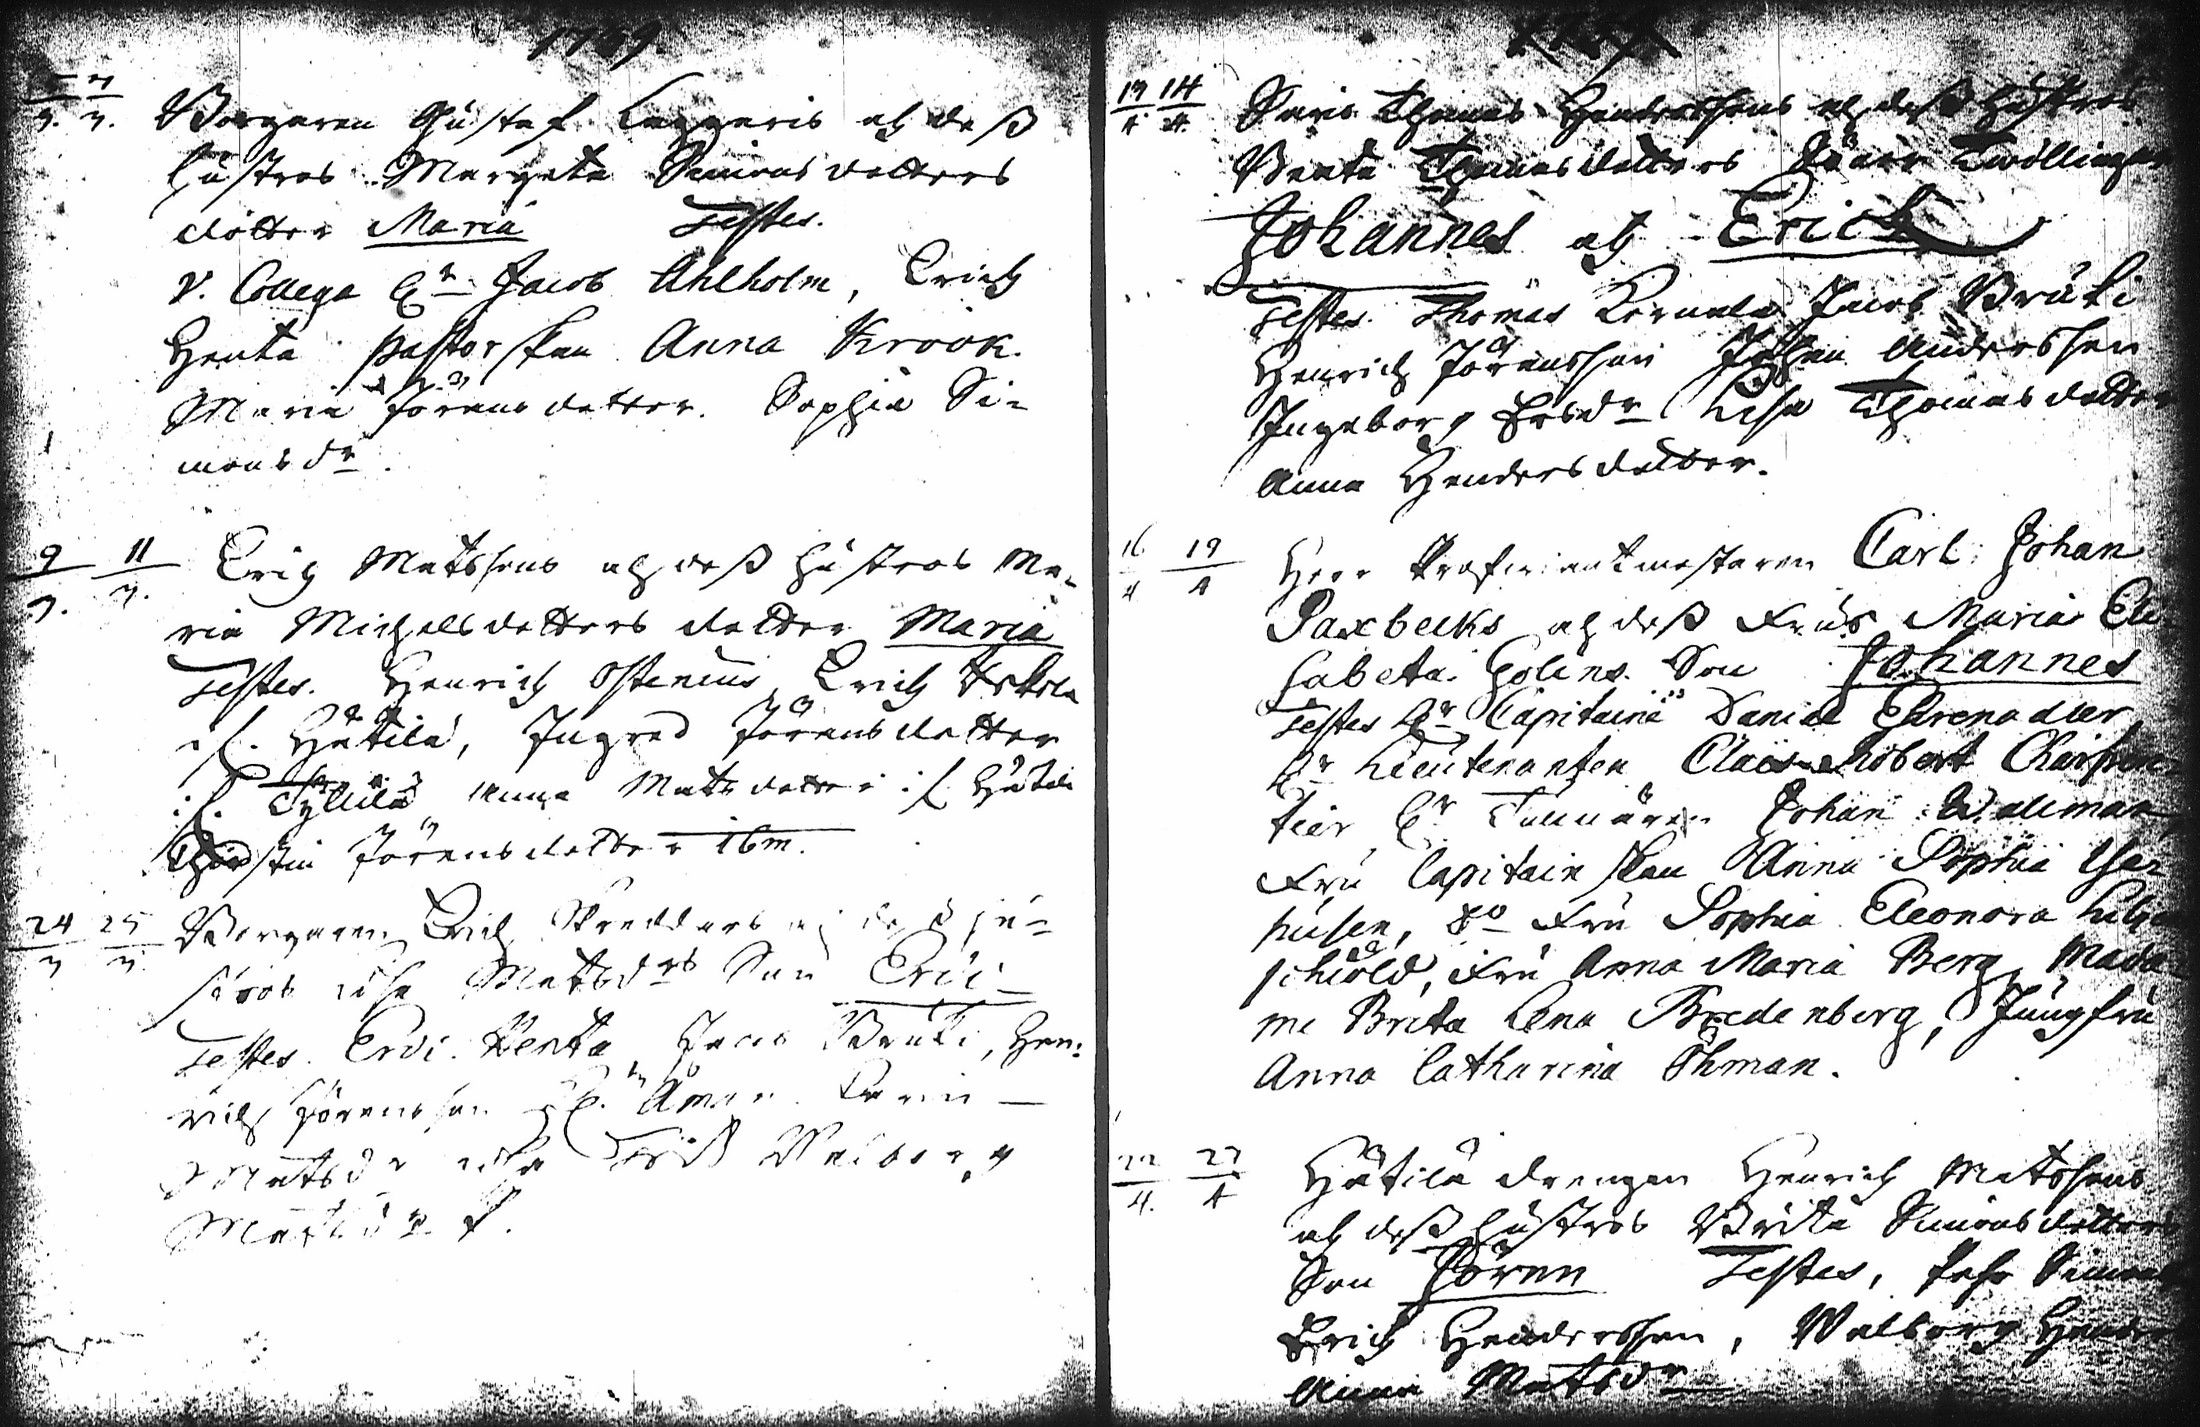 1769
7
3. 3.
Borgaren Gustaf Lepparis och dess
hustrus Margeta Simonsdotters
dotter Maria Testes.
V. Collega Hr Jacob Ahlholm, Erich
Henta pastorskan Anna Krook.
Maria Jörensdotter. Sophia Si-
monsdr.
9 11
3. 3.
Erich Matssons och dess hustrus Ma-
ria Michelsdotters dotter Maria
Testes. Henrich Ostenius, Erich
if. Hätilä, Ingred Jörensdotter
if. Anna Matsdotter if Hätilä
Jörensdotter ibm.
24 25
3 3
Borgaren Erich Skreddars och dess hu-
strus Lisa Matsdrs Son Eric
Testes. Henta, Jacob Bruki, Hen-
rich Jörensson Åman. Carin
Matsdr Lisa Valborg
Matsdr
13 14
4 4
Thomas Henderssons och dess hustrus
Beata Thomasdotters Söner Twillingar
Johannes och Erich
Testes. Thomas Jacob Bruki
Henrich Jörensson Johan Andersson
Ingeborg Ersdr Lisa Thomasdotter
Anna Hendersdotter.
16 19
4 4
Herr Profwiantmestaren Carl Johan
Saxbecks och dess Frus Maria Eli-
sabeta Polens Son Johannes
Testes Hr Capitaine Daniel Ehrenadler
Hr Lieutenanten Claes Robert Charpen-
tier Hr Johan Wallman,
Fru Capitainskan Anna Sophia
husen, do Fru Sophia Eleonora Lilje-
schiöld, Fru Anna Maria Berg, Mada-
me Brita Lena Bredenberg, Jungfru
Anna Catharina Öhman.
22 23
4. 4
Hätilä drengen Henrich Matssons
och dess hustrus Brita Simonsdotters
Son Jören Testes,
Erich Hendersson, Walborg
Anna Matsdr